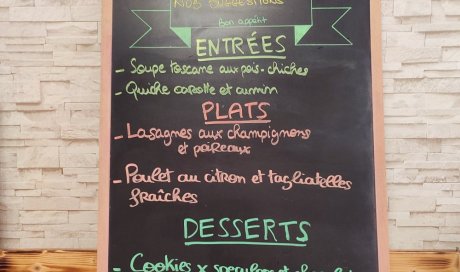 NOS SUGGESTIONS
Bon appétit
ENTRÉES
- Soupe toscane aux pois-chiches
- Quiche carotte et cumin
PLATS
- Lasagnes aux champignons
et poireaux
- Poulet au citron et tagliatelles
fraîches
DESSERTS
- Cookies x speculoos et